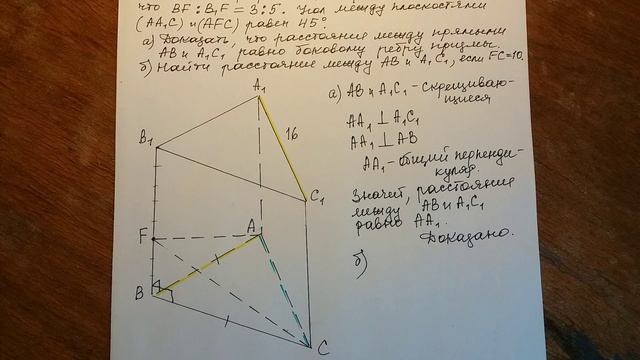 что BF : B₁F = 3 : 5. Угол между плоскостями
(AA₁C) и (AFC) равен 45°
а) Доказать, что расстояние между прямыми
AB и A₁C₁ равно боковому ребру призмы.
б) Найти расстояние между AB и A₁C₁, если FC=10.
а) AB и A₁C₁ - скрещиваю-
щиеся
AA₁ ⊥ A₁C₁
AA₁ ⊥ AB
AA₁ - общий перпенди-
куляр.
Значит, расстояние
между AB и A₁C₁
равно AA₁.
Доказано.
б)
A₁
B₁
16
C₁
F
A
B
C